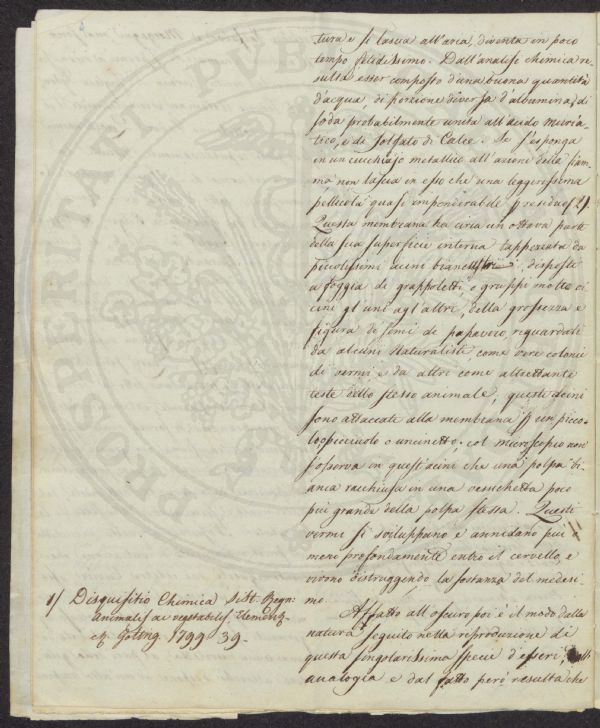 tura e si lascia all'aria, diventa in poco
tempo fetidissimo. Dall'analisi chimica re-
sulta esser composto d'una buona quantità
d'acqua, di porzione diversa d'albumina, di
soda probabilmente unita all'acido muria-
tico, e di solfato di Calce. Se s'esponga
in un cucchiajo metallico all'azione della fiam-
ma non lascia in esso che una leggerissima
pellicola quasi imponderabile residuo
Questa membrana ha circa un ottava parte
della sua superficie interna tappezzata da
piccolissimi acini disposti
a foggia di grappoletti, o gruppi molto vi-
cini gl'uni agl'altri, della grossezza e
figura de semi di papavero, reguardati
da alcuni Naturalisti, come vere colonie
di vermi e da altri come altrettante
teste dello stesso animale, questi acini
sono attaccati alla membrana un picco-
lo picciuolo o uncinetto. col microscopio non
s'osserva in quest'acini che una polpa bi-
anca racchiusa in una vescichetta poco
più grande della polpa stessa. Questi
vermi si sviluppano e annidano più
meno profondamente entro il cervello, e
vivono distruggendo la sostanza del medesi-
mo.
Affatto all'oscuro poi è il modo dalla
natura seguito nella riproduzione di
questa singolarissima specie d'esseri,
analogia e dal fatto però resulta che
1/ Disquisitio Chimica Regn:
Animalis ac vegetabilis Element-
Götting. 1799 39.
PROSPERITATI PVBL